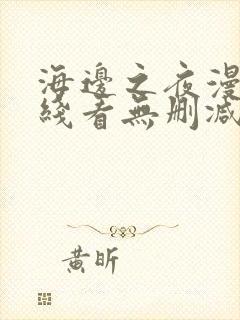 海邊之夜漫
綫看無刪減
黄昕